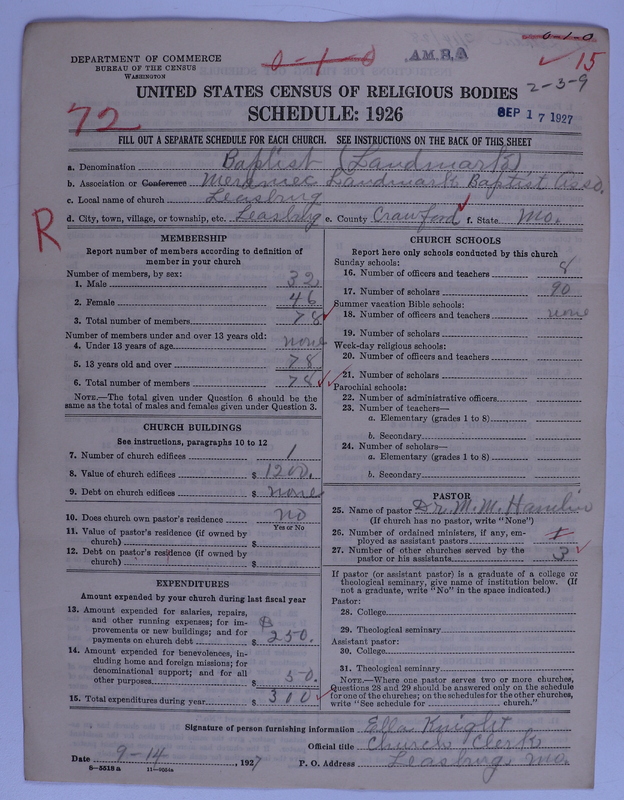 0-1-0
DEPARTMENT OF COMMERCE
BUREAU OF THE CENSUS
WASHINGTON
0-1-0
A.M.B.A
15
UNITED STATES CENSUS OF RELIGIOUS BODIES
2-3-9
SCHEDULE: 1926
SEP 17 1927
72
FILL OUT A SEPARATE SCHEDULE FOR EACH CHURCH. SEE INSTRUCTIONS ON THE BACK OF THIS SHEET
a. Denomination Baptist (Landmark)
b. Association or Conference Meramec Landmark Baptist Asso.
c. Local name of church Leasburg
d. City, town, village, or township, etc. Leasburg e. County Crawford f. State Mo.
R
MEMBERSHIP
Report number of members according to definition of
member in your church
Number of members, by sex:
1. Male 32
2. Female 46
3. Total number of members 78
Number of members under and over 13 years old:
4. Under 13 years of age none
5. 13 years old and over 78
6. Total number of members 78
NOTE.—The total given under Question 6 should be
same as the total of males and females given under Question 3.
CHURCH BUILDINGS
See instructions, paragraphs 10 to 12
7. Number of church edifices 1
8. Value of church edifices $ 1200.
9. Debt on church edifices $ none
10. Does church own pastor's residence no
Yes or No
11. Value of pastor's residence (if owned by
church) $
12. Debt on pastor's residence (if owned by
church) $
EXPENDITURES
Amount expended by your church during last fiscal year
13. Amount expended for salaries, repairs,
and other running expenses; for im-
provements or new buildings; and for
payments on church debt $ 250.
14. Amount expended for benevolences, in-
cluding home and foreign missions; for
denominational support; and for all
other purposes $ 50.
15. Total expenditures during year $ 300
CHURCH SCHOOLS
Report here only schools conducted by this church
Sunday schools:
16. Number of officers and teachers 8
17. Number of scholars 90
Summer vacation Bible schools:
18. Number of officers and teachers none
19. Number of scholars
Week-day religious schools:
20. Number of officers and teachers
21. Number of scholars
Parochial schools:
22. Number of administrative officers
23. Number of teachers—
a. Elementary (grades 1 to 8)
b. Secondary
24. Number of scholars—
a. Elementary (grades 1 to 8)
b. Secondary
PASTOR
25. Name of pastor Dr. M. M. Hamlin
(If church has no pastor, write "None")
26. Number of ordained ministers, if any, em-
ployed as assistant pastors 1
27. Number of other churches served by the
pastor or his assistants 3
If pastor (or assistant pastor) is a graduate of a college or
theological seminary, give name of institution below. (If
not a graduate, write "No" in the space indicated.)
Pastor:
28. College
29. Theological seminary
Assistant pastor:
30. College
31. Theological seminary
NOTE.—Where one pastor serves two or more churches,
Questions 28 and 29 should be answered only on the schedule
for one of the churches; on the schedules for the other churches,
write "See schedule for church."
Signature of person furnishing information Ella Knight
Official title Church Clerk
Date 9-14, 1927 P. O. Address Leasburg, Mo.
8-5518 a